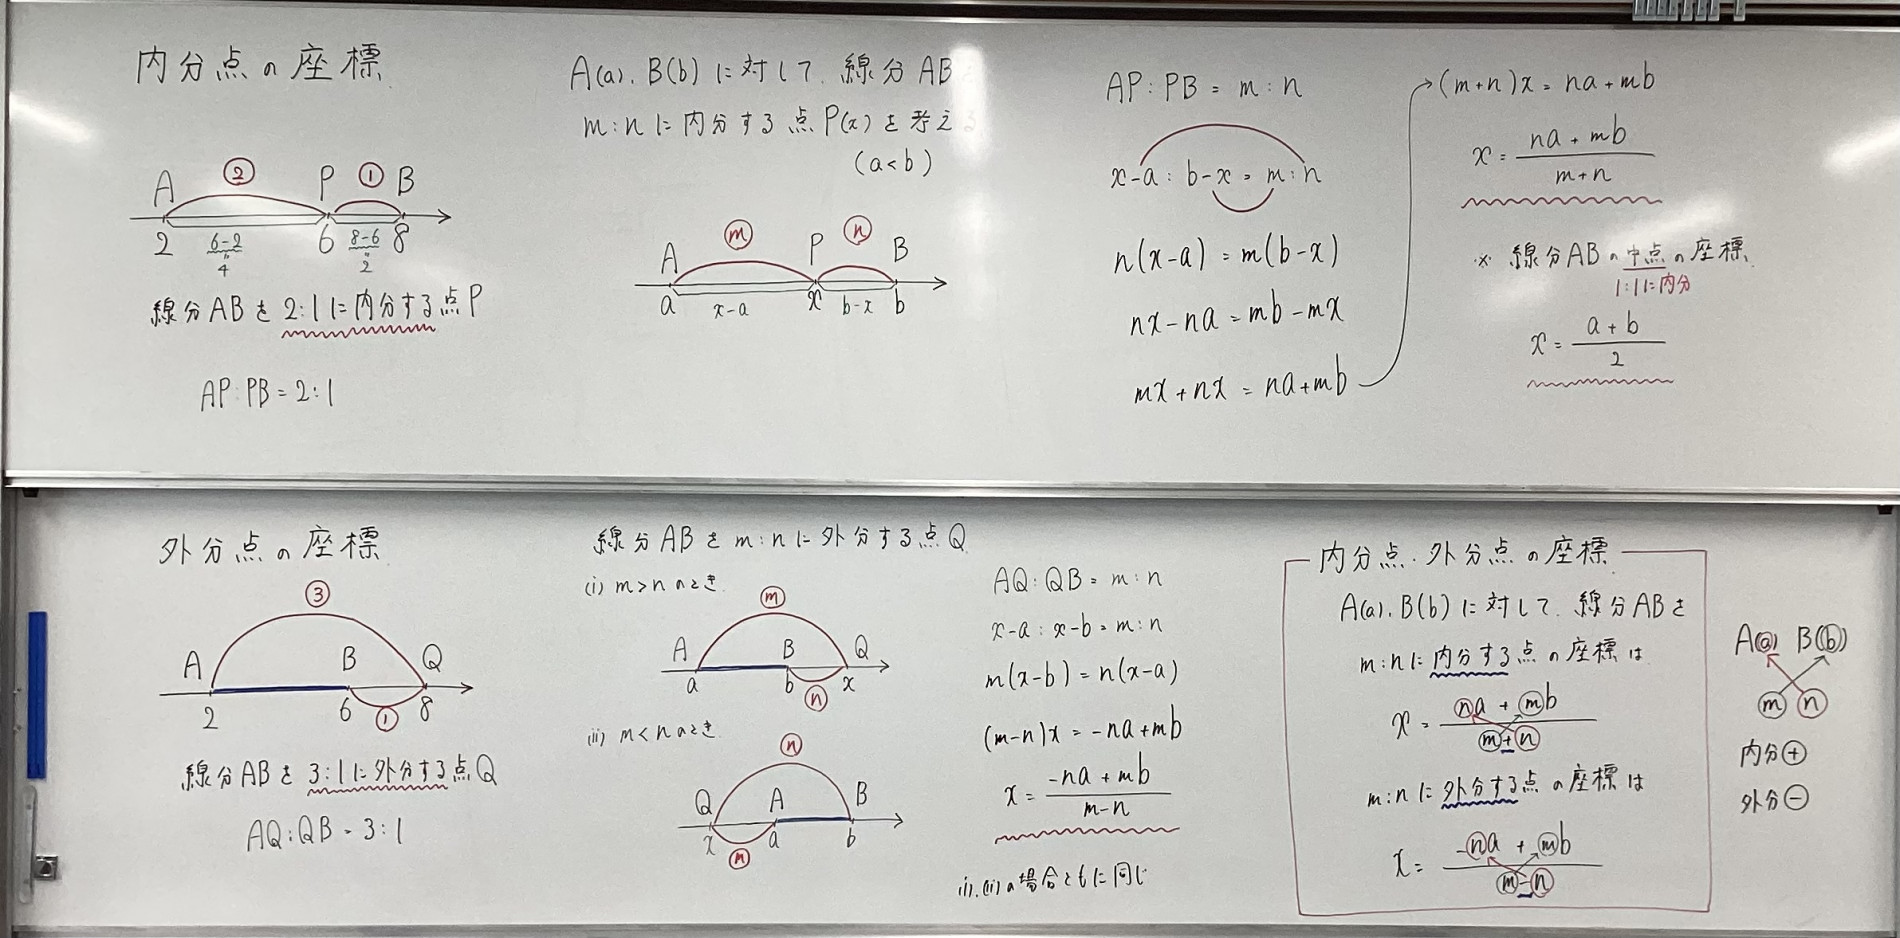 内分点の座標
A ② P ① B
2 6-2 6 8-6 8
4 2
線分ABを2:1に内分する点P
AP:PB=2:1
A(a). B(b)に対して. 線分AB
m:nに内分する点P(x)を考える
(a<b)
A ⓜ P ⓝ B
a x-a x b-x b
AP:PB=m:n
x-a:b-x=m:n
n(x-a)=m(b-x)
nx-na=mb-mx
mx+nx=na+mb
(m+n)x=na+mb
x=\frac{na+mb}{m+n}
※ 線分ABの中点の座標
1:1に内分
x=\frac{a+b}{2}
外分点の座標
③
A B Q
2 6 ① 8
線分ABを3:1に外分する点Q
AQ:QB=3:1
線分ABをm:nに外分する点Q
(i) m>nのとき
ⓜ
A B Q
a b ⓝ x
(ii) m<nのとき
ⓝ
Q A B
x ⓜ a b
AQ:QB=m:n
x-a:x-b=m:n
m(x-b)=n(x-a)
(m-n)x=-na+mb
x=\frac{-na+mb}{m-n}
(i).(ii)の場合ともに同じ
内分点.外分点の座標
A(a). B(b)に対して. 線分ABを
m:nに内分する点の座標は
x=\frac{ⓝa+ⓜb}{ⓜ+ⓝ}
m:nに外分する点の座標は
x=\frac{-ⓝa+ⓜb}{ⓜ-ⓝ}
A(ⓐ) B(ⓑ)
ⓜ ⓝ
内分⊕
外分⊖